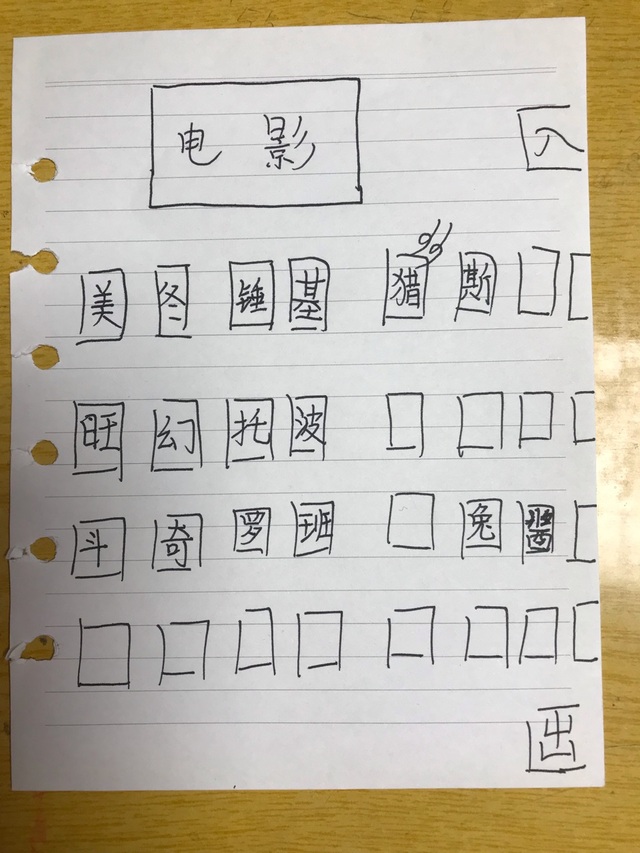 电影
入
美 冬 锤 基 猎 斯
旺 幻 托 波
斗 奇 罗 班 兔
出